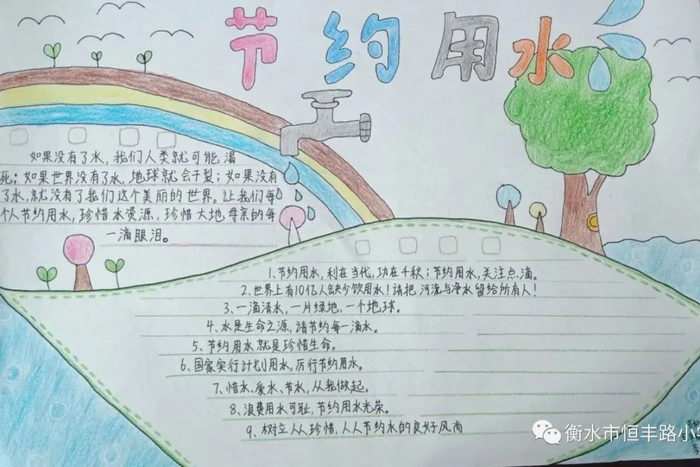 节约用水
如果没有了水，我们人类就可能渴
死；如果世界没有了水，地球就会干裂；如果没有
了水，就没有了我们这个美丽的世界。让我们每
个人节约用水，珍惜水资源，珍惜大地母亲的每
一滴眼泪。
1、节约用水，利在当代，功在千秋；节约用水，关注点滴。
2、世界上有10亿人缺少饮用水！请把污流与净水留给所有人！
3、一滴清水，一片绿地，一个地球。
4、水是生命之源，请节约每一滴水。
5、节约用水就是珍惜生命。
6、国家实行计划用水，厉行节约用水。
7、惜水、爱水、节水，从我做起。
8、浪费用水可耻，节约用水光荣。
9、树立人人珍惜，人人节约水的良好风尚
衡水市恒丰路小